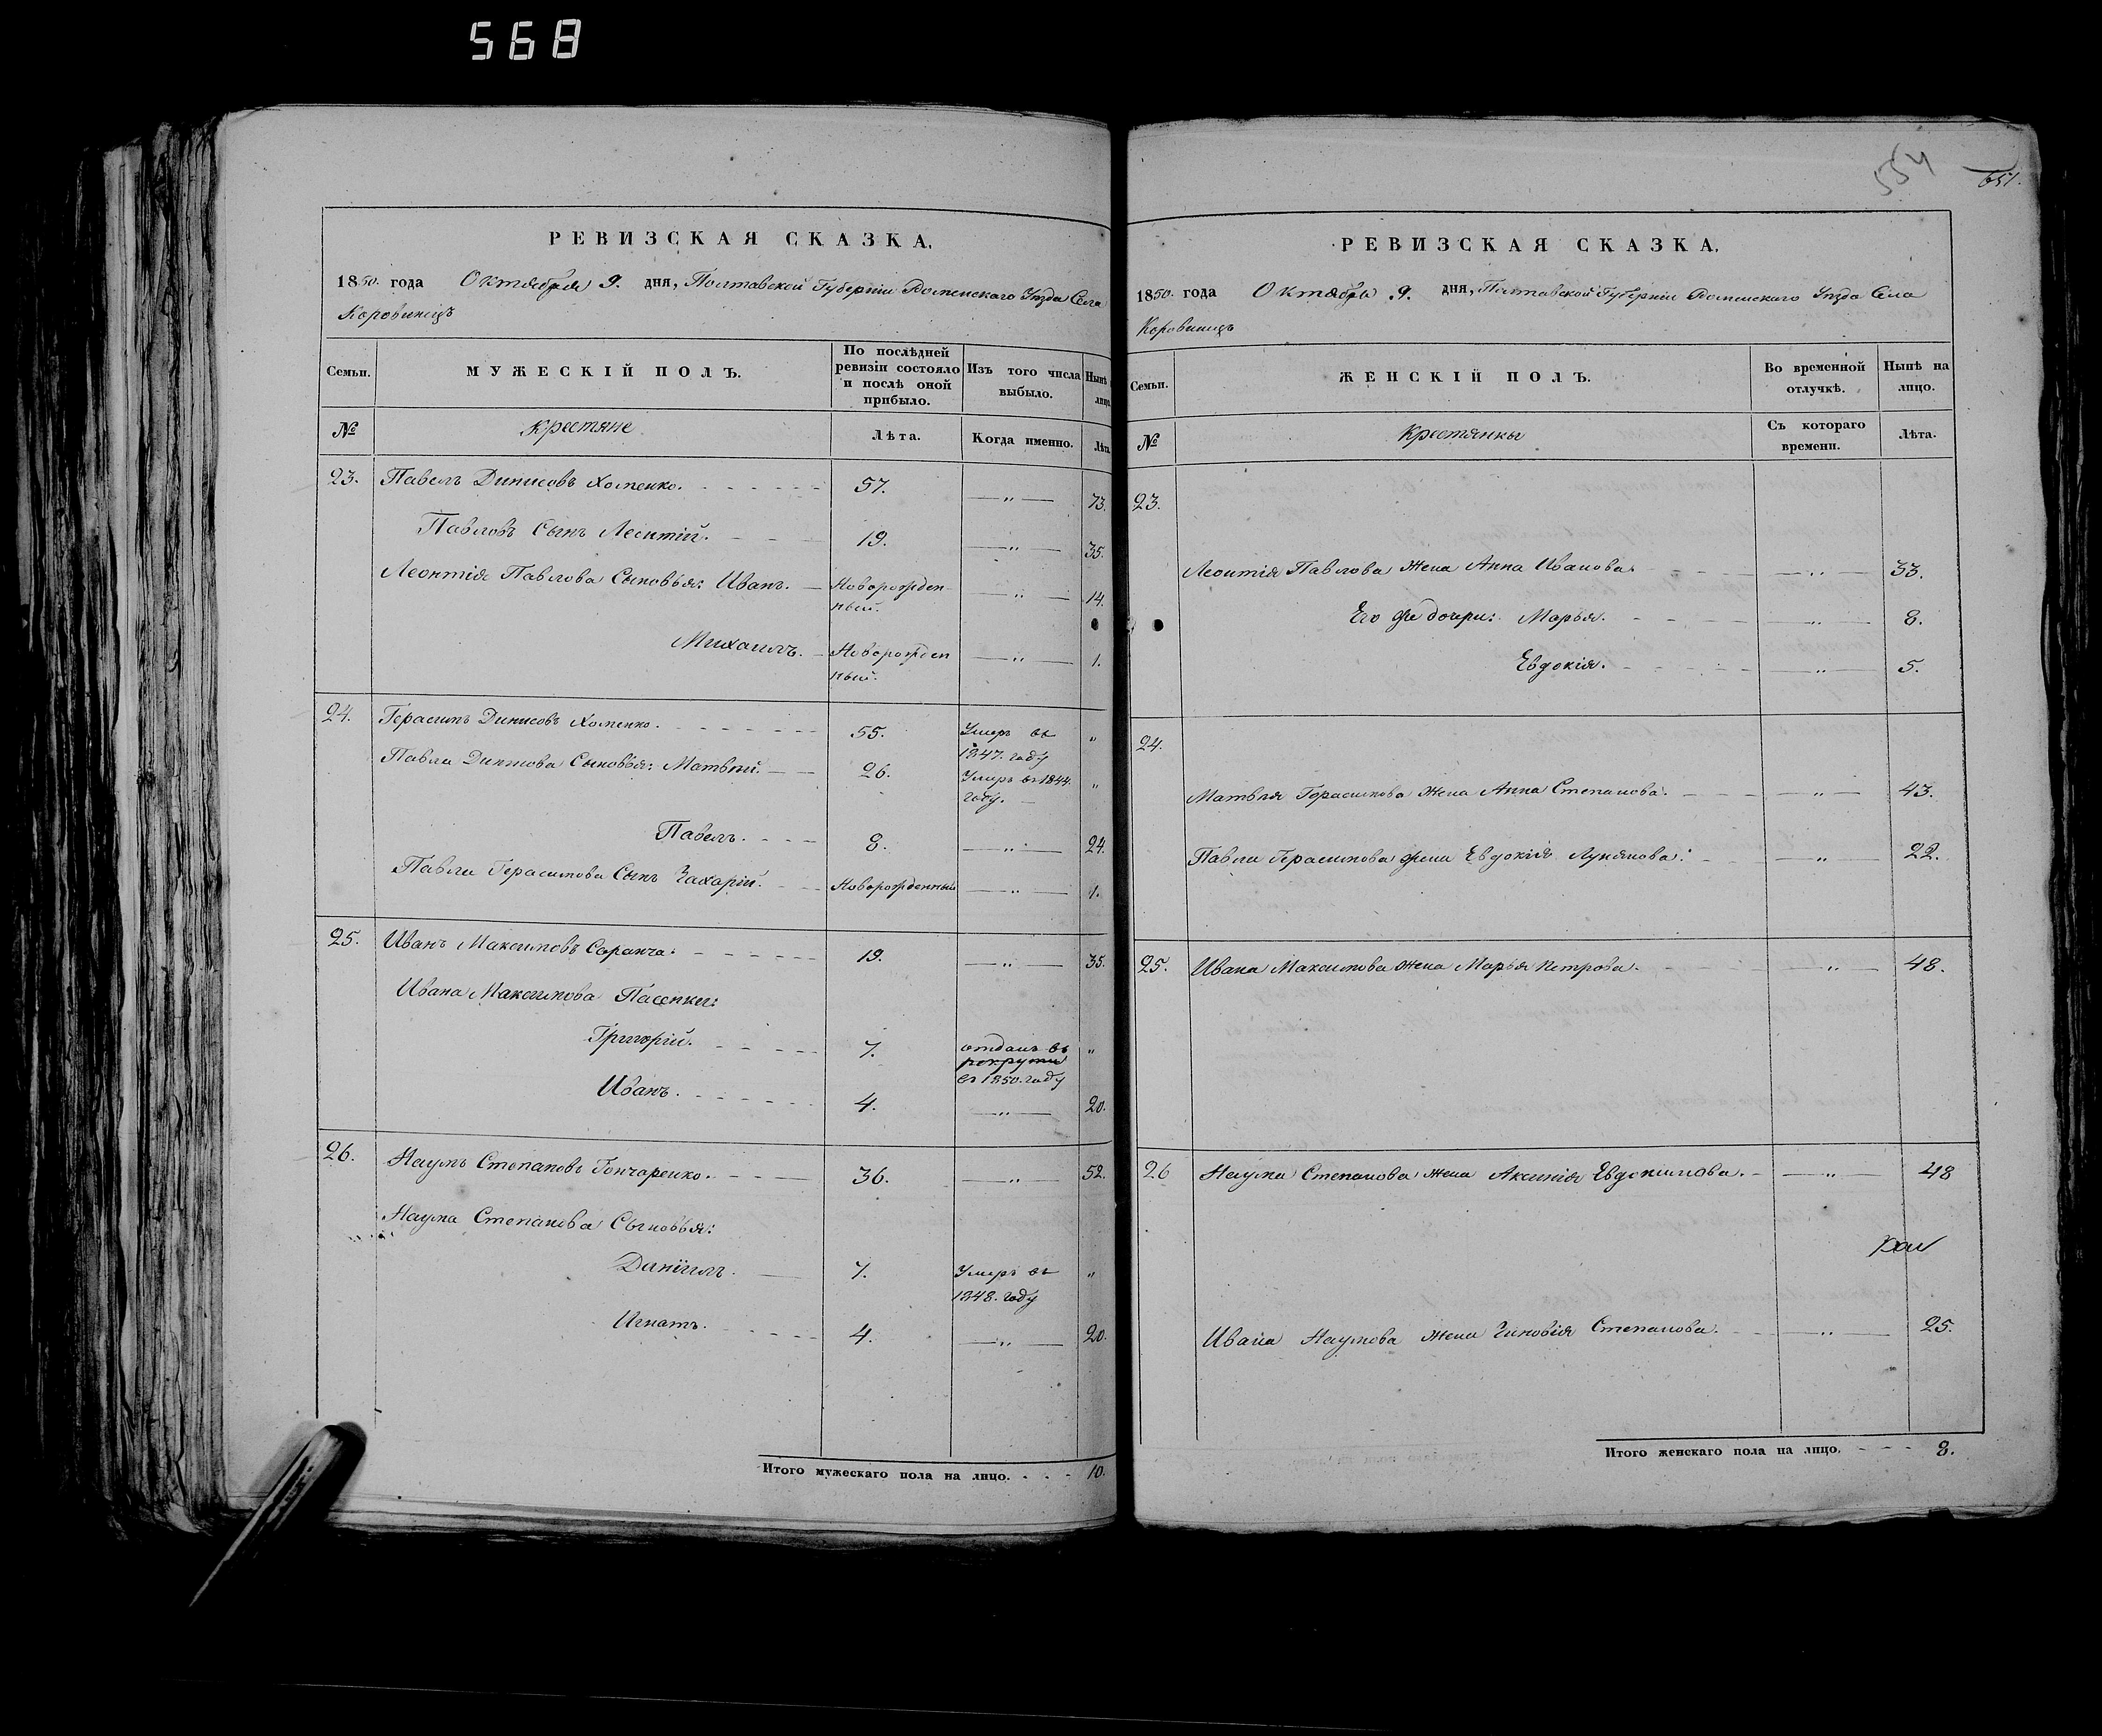 568
РЕВИЗСКАЯ СКАЗКА.
1850. года Октября 9. дня, Полтавской Губерніи Роменскаго Уѣзда Села
Коровинецъ
Семьи. МУЖЕСКІЙ ПОЛЪ. По послѣдней ревизіи состояло и послѣ оной прибыло. Изъ того числа выбыло. Нынѣ лицо.
№ Крестяне Лѣта. Когда именно. Лѣта
23. Павелъ Динисовъ Хоменко. 57. " 73.
Павловъ Сынъ Леонтій. 19. " 35.
Леонтія Павлова Сыновья: Иванъ. Новорожден- " 14.
ный.
Михаилъ. Новорожден " 1.
ный.
24. Герасимъ Динисовъ Хоменко. 55. Умеръ въ "
1847. году
Павла Динисова Сыновья: Матвѣй. 26. Умеръ въ 1844. "
году.
Павелъ. 8. " 24.
Павла Герасимова Сынъ Захарій. Новорожденный " 1.
25. Иванъ Максимовъ Саранча. 19. " 35.
Ивана Максимова Пасенки:
Григорій. 7. отданъ въ "
рекруты
въ 1850. году
Иванъ. 4. " 20.
26. Наумъ Степановъ Гончаренко. 36. " 52.
Наума Степанова Сыновья:
Даніилъ. 7. Умеръ въ "
1848. году
Игнатъ. 4. " 20.
Итого мужескаго пола на лицо. 10.
554
651.
РЕВИЗСКАЯ СКАЗКА.
1850. года Октября 9. дня, Полтавской Губерніи Роменскаго Уѣзда Села
Коровинецъ
Семьи. ЖЕНСКІЙ ПОЛЪ. Во временной отлучкѣ. Нынѣ на лицо.
№ Крестянки Съ котораго времени. Лѣта.
23.
Леонтія Павлова Жена Анна Иванова. " 33.
Его же дочери: Марья. " 8.
Евдокія. " 5.
24.
Матвѣя Герасимова Жена Анна Степанова. " 43.
Павла Герасимова жена Евдокія Лукянова. " 22.
25. Ивана Максимова Жена Марья Петрова. " 48.
26 Наума Степанова Жена Аксинія Евдокимова. " 48
Ивана Наумова Жена Зиновія Степанова. " 25.
Итого женскаго пола на лицо. 8.